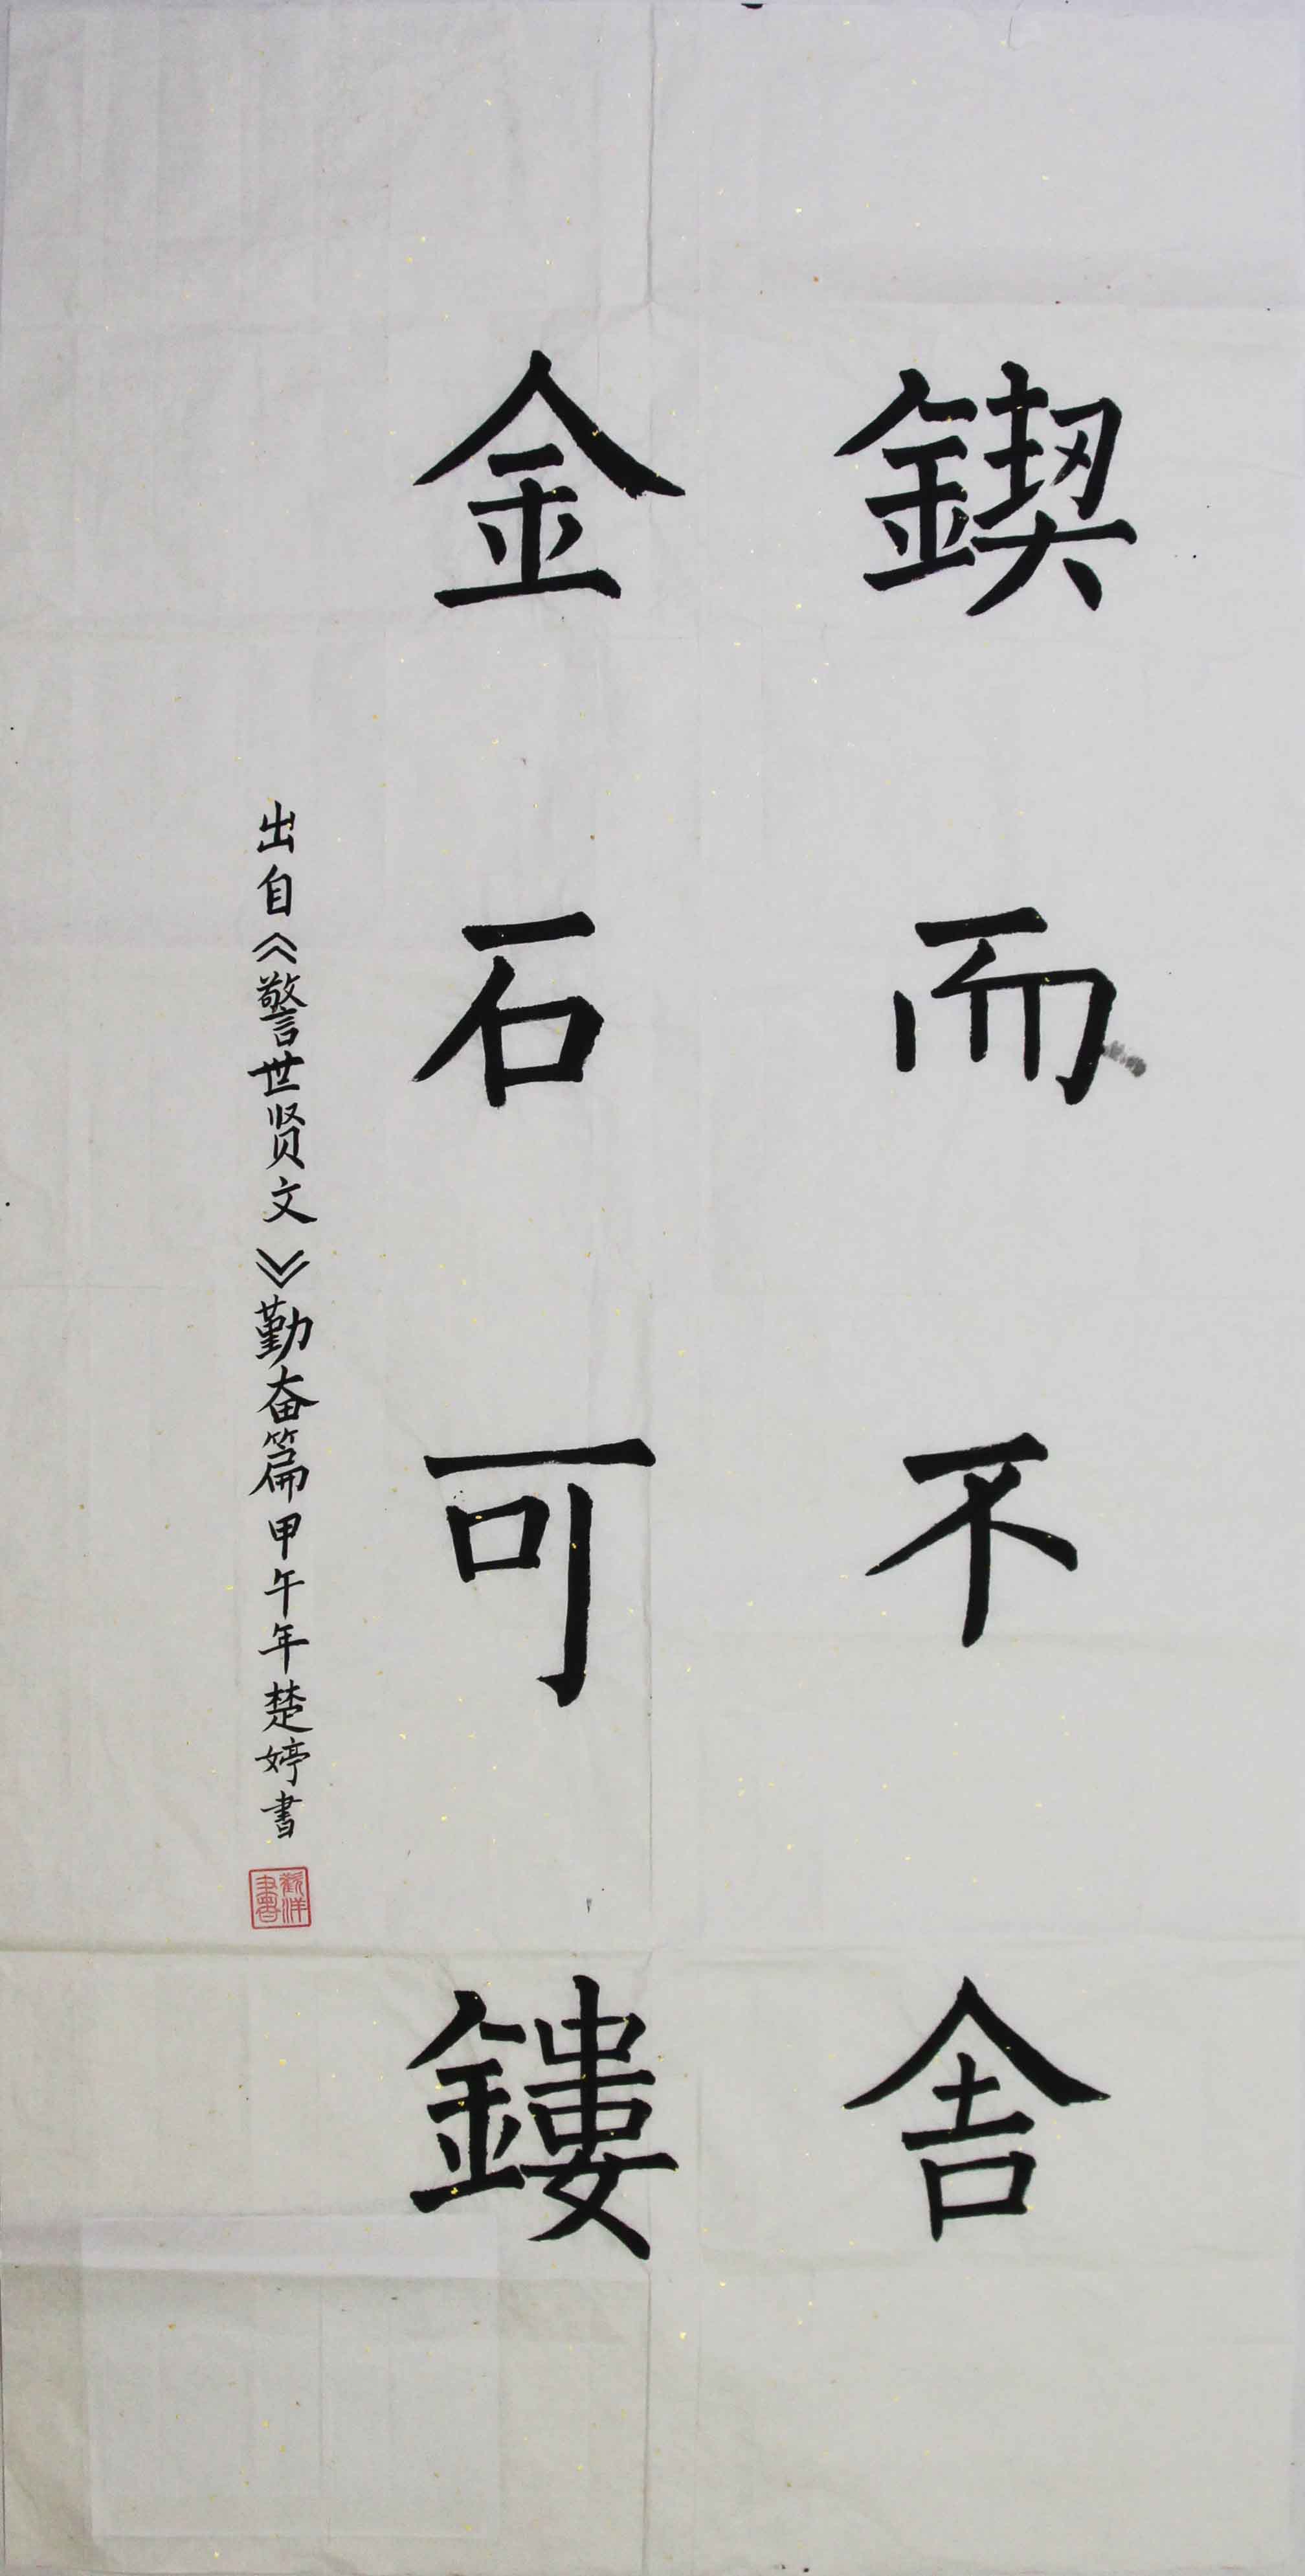 鍥而不舍
金石可鏤
出自《警世贤文》勤奋篇甲午年楚婷書